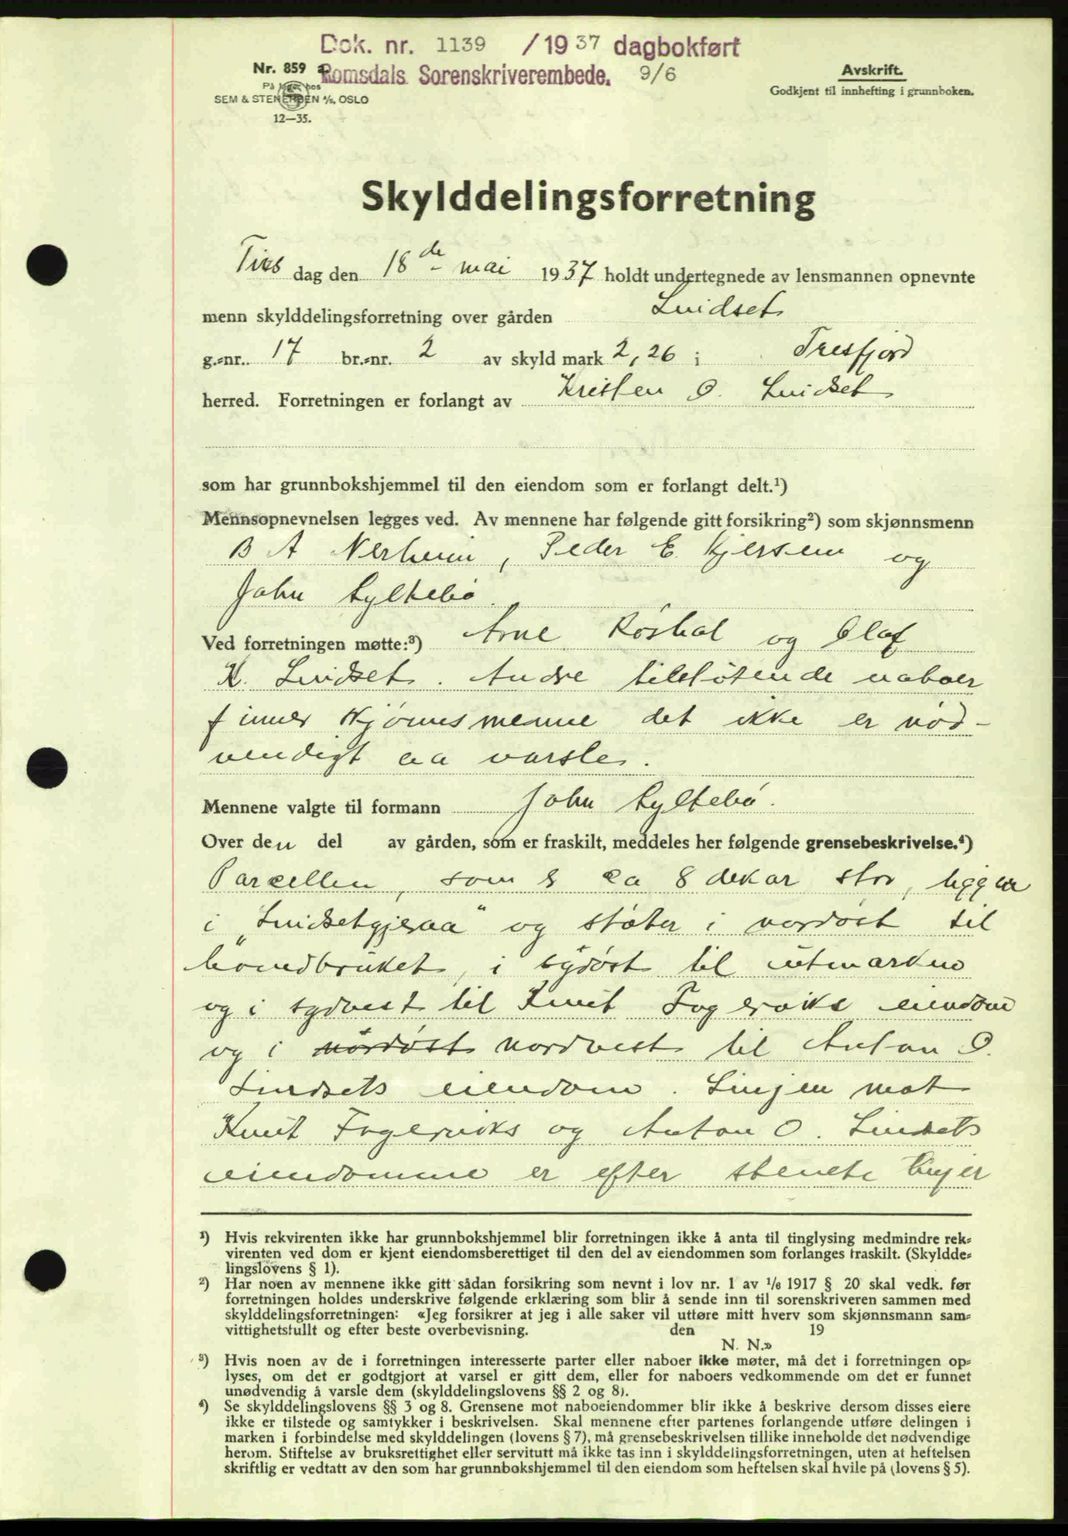 Dok. nr. 1139 / 1937 dagbokført
Romsdals Sorenskriverembede. 9/6
Nr. 859
På lager hos
SEM & STENERSEN A/S, OSLO
12—35.
Avskrift.
Godkjent til innhefting i grunnboken.
Skylddelingsforretning
Tirsdag den 18de mai 1937 holdt undertegnede av lensmannen opnevnte
menn skylddelingsforretning over gården Lindset
g.-nr. 17 br.-nr. 2 av skyld mark 2,26 i Tresfjord
herred. Forretningen er forlangt av Kristen O. Lindset
som har grunnbokshjemmel til den eiendom som er forlangt delt.¹)
Mennsopnevnelsen legges ved. Av mennene har følgende gitt forsikring²) som skjønnsmenn
B A Nerheim, Peder E Kjersem og
John Syltebø.
Ved forretningen møtte:³) Arne Røshol og Olaf
K. Lindset. Andre tilstøtende naboer
finner skjønnsmenne det ikke er nød-
vendigt aa varsle.
Mennene valgte til formann John Syltebø.
Over den del av gården, som er fraskilt, meddeles her følgende grensebeskrivelse.⁴)
Parcellen, som er ca 8 dekar stor, ligger
i "Lindsetgjeraa" og støter i nordøst til
hovedbruket, i sydøst til utmarken
og i sydvest til Knut Fagerviks eiendom
og i nordøst nordvest til Anton O.
Lindsets eiendom. Linjen mot
Knut Fagerviks og Anton O. Lindsets
eiendomme er efter stenete linjer
¹) Hvis rekvirenten ikke har grunnbokshjemmel blir forretningen ikke å anta til tinglysing medmindre rek-
virenten ved dom er kjent eiendomsberettiget til den del av eiendommen som forlanges fraskilt. (Skyldde-
lingslovens § 1).
²) Har noen av mennene ikke gitt sådan forsikring som nevnt i lov nr. 1 av 1/6 1917 § 20 skal vedk. før
forretningen holdes underskrive følgende erklæring som blir å sende inn til sorenskriveren sammen med
skylddelingsforretningen: «Jeg forsikrer at jeg i alle saker vil utføre mitt hverv som skjønnsmann sam-
vittighetsfullt og efter beste overbevisning. den 19
N. N.»
³) Hvis noen av de i forretningen interesserte parter eller naboer ikke møter, må det i forretningen op-
lyses, om det er godtgjort at varsel er gitt dem, eller for naboers vedkommende om det er funnet
unødvendig å varsle dem (skylddelingslovens §§ 2 og 8).
⁴) Se skylddelingslovens §§ 3 og 8. Grensene mot naboeiendommer blir ikke å beskrive dersom disses eiere
ikke er tilstede og samtykker i beskrivelsen. Skal mennene efter partenes forlangende utføre delingen i
marken i forbindelse med skylddelingen (lovens § 7), må grensebeskrivelsen tillike inneholde det nødvendige
herom. Stiftelse av bruksrettighet eller servitutt må ikke tas inn i skylddelingsforretningen, uten at heftelsen
skriftlig er vedtatt av den som har grunnbokshjemmel til den eiendom som heftelsen skal hvile på (lovens § 5).